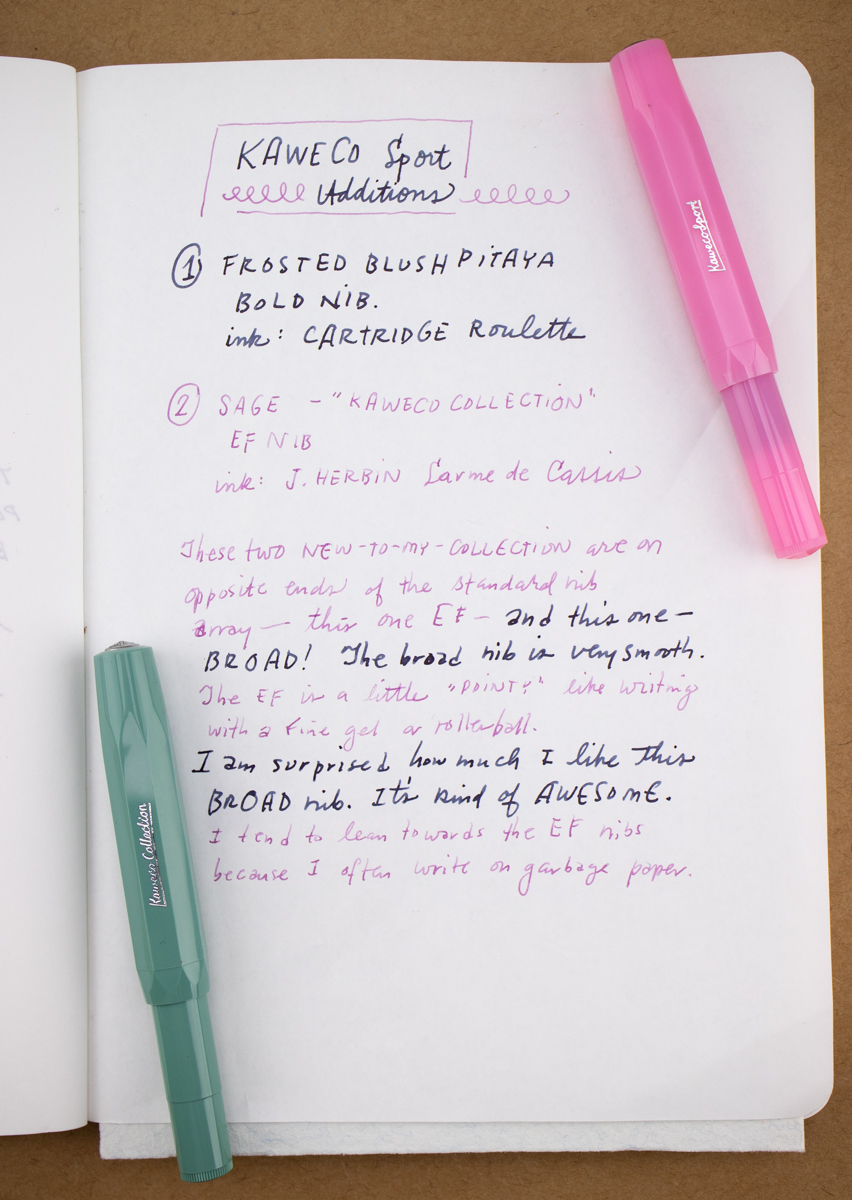 KAWECO Sport
Additions
1 FROSTED BLUSH PiTAYA
BOLD NIB.
ink: CARTRIDGE Roulette
2 SAGE - "KAWECO COLLECTION"
EF NIB
ink: J. HERBIN Larme de Cassis
These two NEW-TO-MY-COLLECTION are on
opposite ends of the standard nib
array — this one EF — and this one —
BROAD! The broad nib is very smooth.
The EF is a little "POINTY" like writing
with a fine gel or rollerball.
I am surprised how much I like this
BROAD nib. It's kind of AWESOME.
I tend to lean towards the EF nibs
because I often write on garbage paper.
KawecoSport
Kaweco Collection